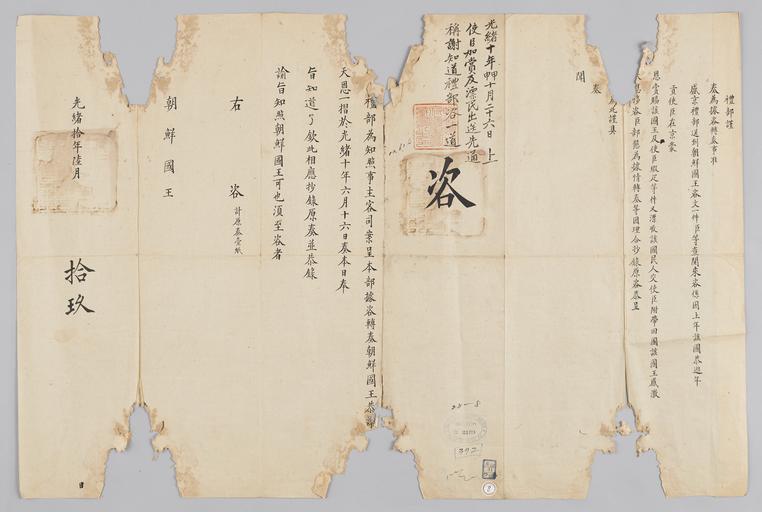 禮部謹
奏為據咨轉奏事准
盛京禮部送到朝鮮國王咨文一件臣等查閱來咨係因上年該國恭進年
貢使臣在京蒙
恩賞賜該國王及使臣緞疋等件又漂収該國民人交使臣附帶回國該國王感激
天恩移咨臣部懇為據情轉奏等因理合抄錄原咨恭呈
聞
為此謹具
奏
光緒十年甲申十月二十六日 上
使臣加賞及漂民出送先通
稱謝知道禮部咨一道
咨
禮部為知照事主客司案呈本部據咨轉奏朝鮮國王恭謝
天恩一摺於光緒十年六月十六日奏本日奉
旨知道了欽此相應抄錄原奏並恭錄
諭旨知照朝鮮國王可也須至咨者
右 咨 計原奏壹紙
朝鮮國王
光緒拾年陸月
日
拾玖
28-8
392